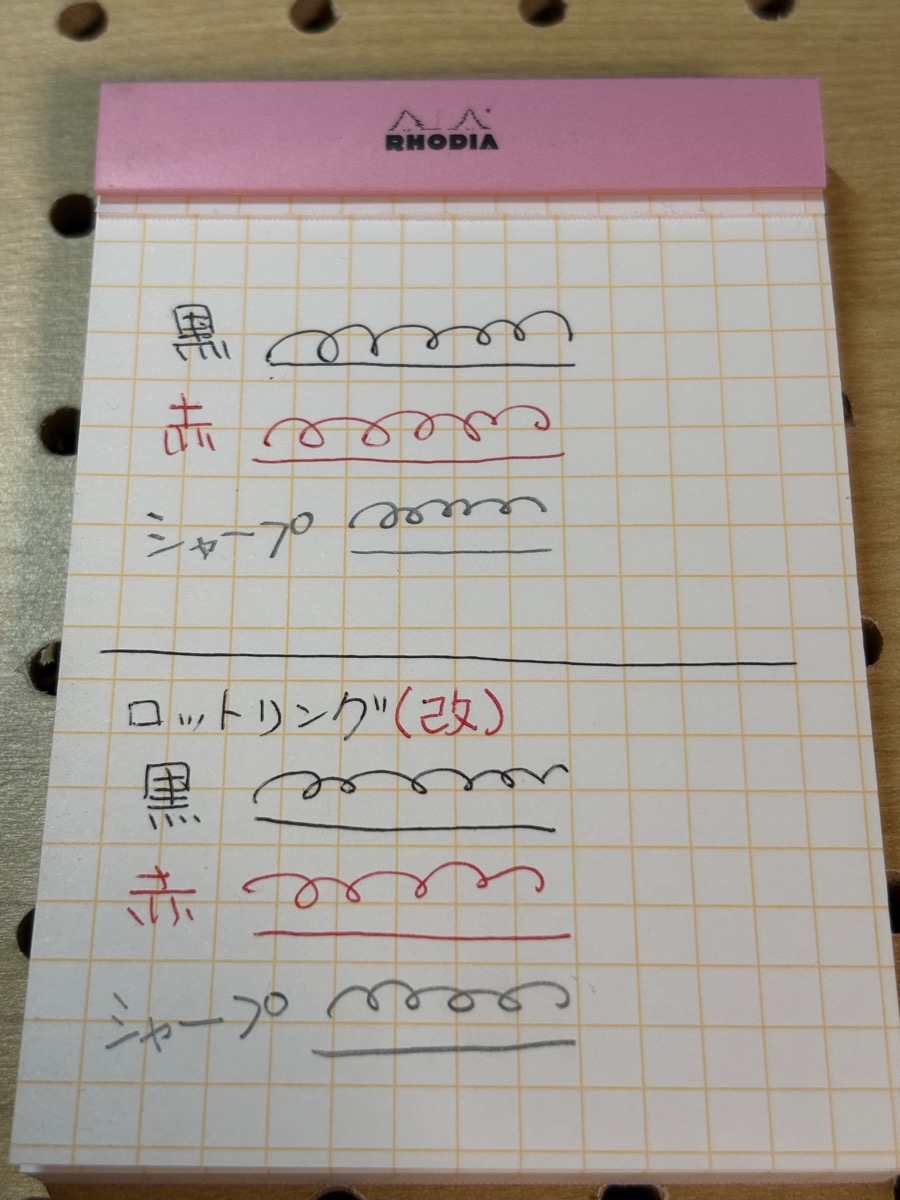 RHODIA
黒
赤
シャープ
ロットリング(改)
黒
赤
シャープ